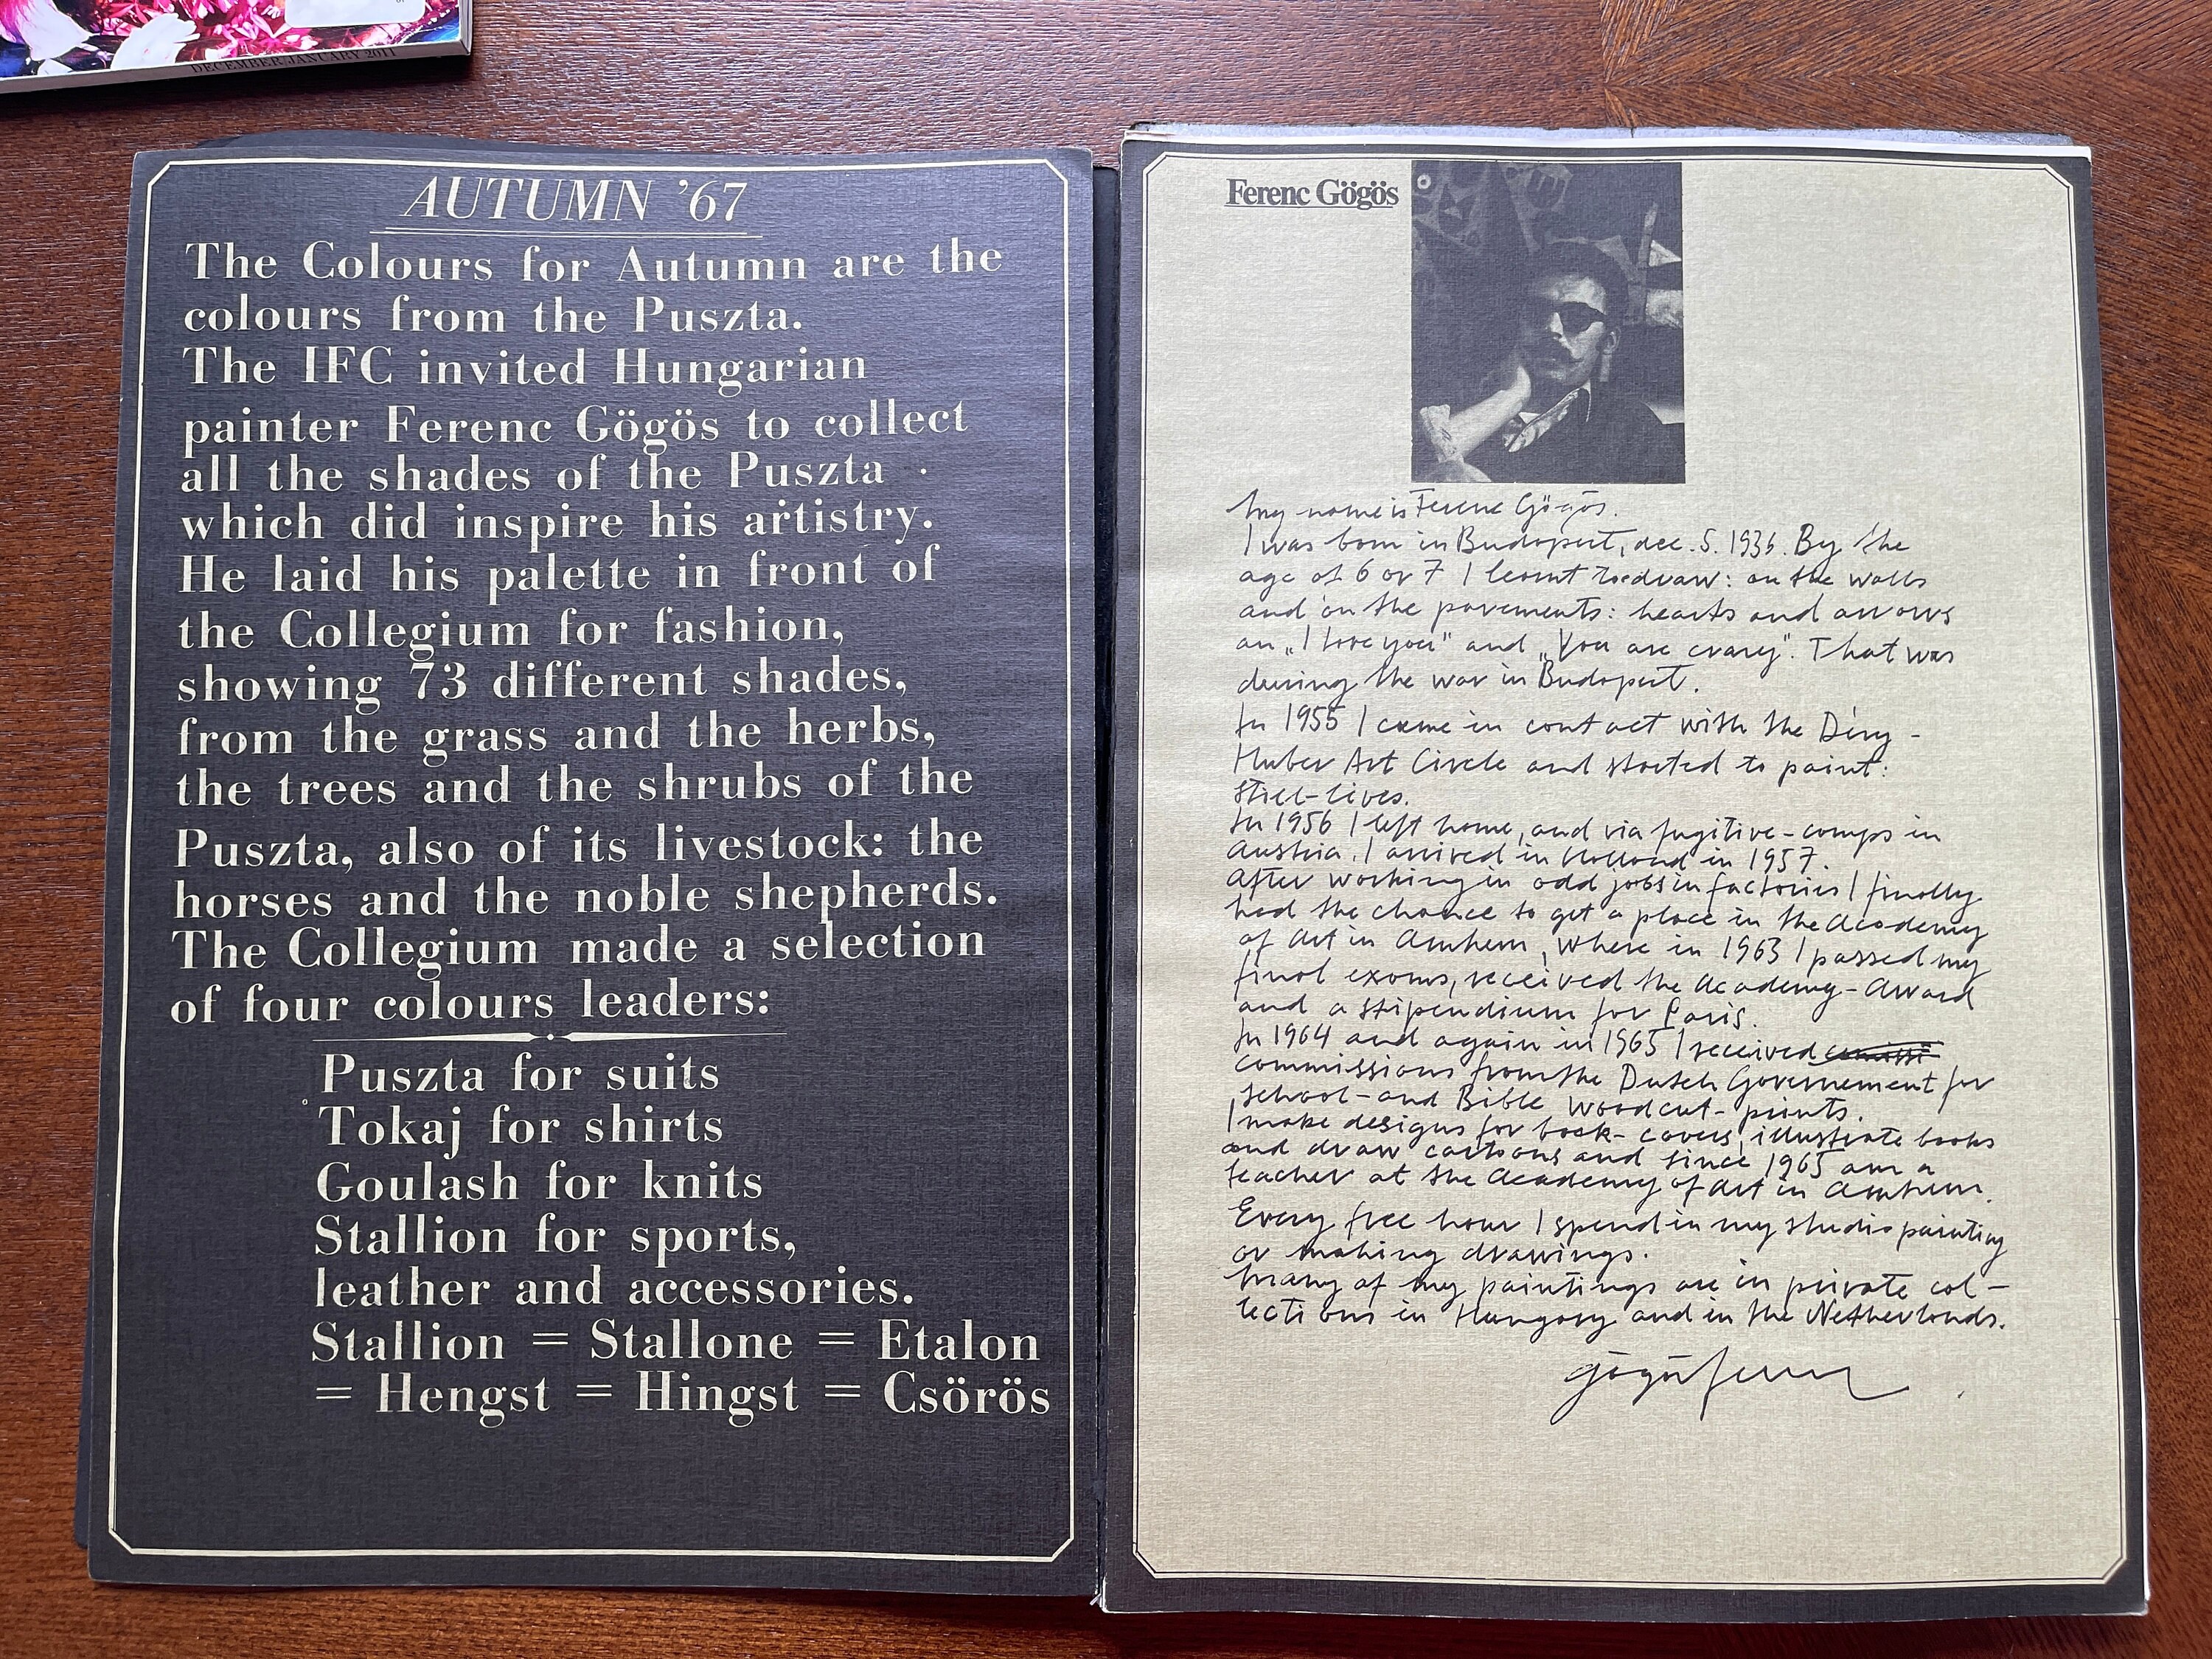 DECEMBER/JANUARY 2011
AUTUMN ’67
The Colours for Autumn are the
colours from the Puszta.
The IFC invited Hungarian
painter Ferenc Gögös to collect
all the shades of the Puszta
which did inspire his artistry.
He laid his palette in front of
the Collegium for fashion,
showing 73 different shades,
from the grass and the herbs,
the trees and the shrubs of the
Puszta, also of its livestock: the
horses and the noble shepherds.
The Collegium made a selection
of four colours leaders:
Puszta for suits
Tokaj for shirts
Goulash for knits
Stallion for sports,
leather and accessories.
Stallion = Stallone = Etalon
= Hengst = Hingst = Csörös
Ferenc Gögös
My name is Ferenc Gögös.
I was born in Budapest, dec. 5. 1936. By the
age of 6 or 7 I learnt to draw: on the walls
and on the pavements: hearts and arrows
an „I love you" and „You are crazy". That was
during the war in Budapest.
In 1955 I came in contact with the Déry-
Huber Art Circle and started to paint:
still-lives.
In 1956 I left home, and via fugitive-camps in
Austria, I arrived in Holland in 1957.
After working in odd jobs in factories I finally
had the chance to get a place in the Academy
of Art in Arnhem, where in 1963 I passed my
final exams, received the Academy-Award
and a stipendium for Paris.
In 1964 and again in 1965 I received
commissions from the Dutch Governement for
school-and Bible woodcut-prints.
I make designs for book-covers, illustrate books
and draw cartoons and since 1965 am a
teacher at the Academy of Art in Arnhem.
Every free hour I spend in my studio painting
or making drawings.
Many of my paintings are in private col-
lections in Hungary and in the Netherlands.
gögös ferenc